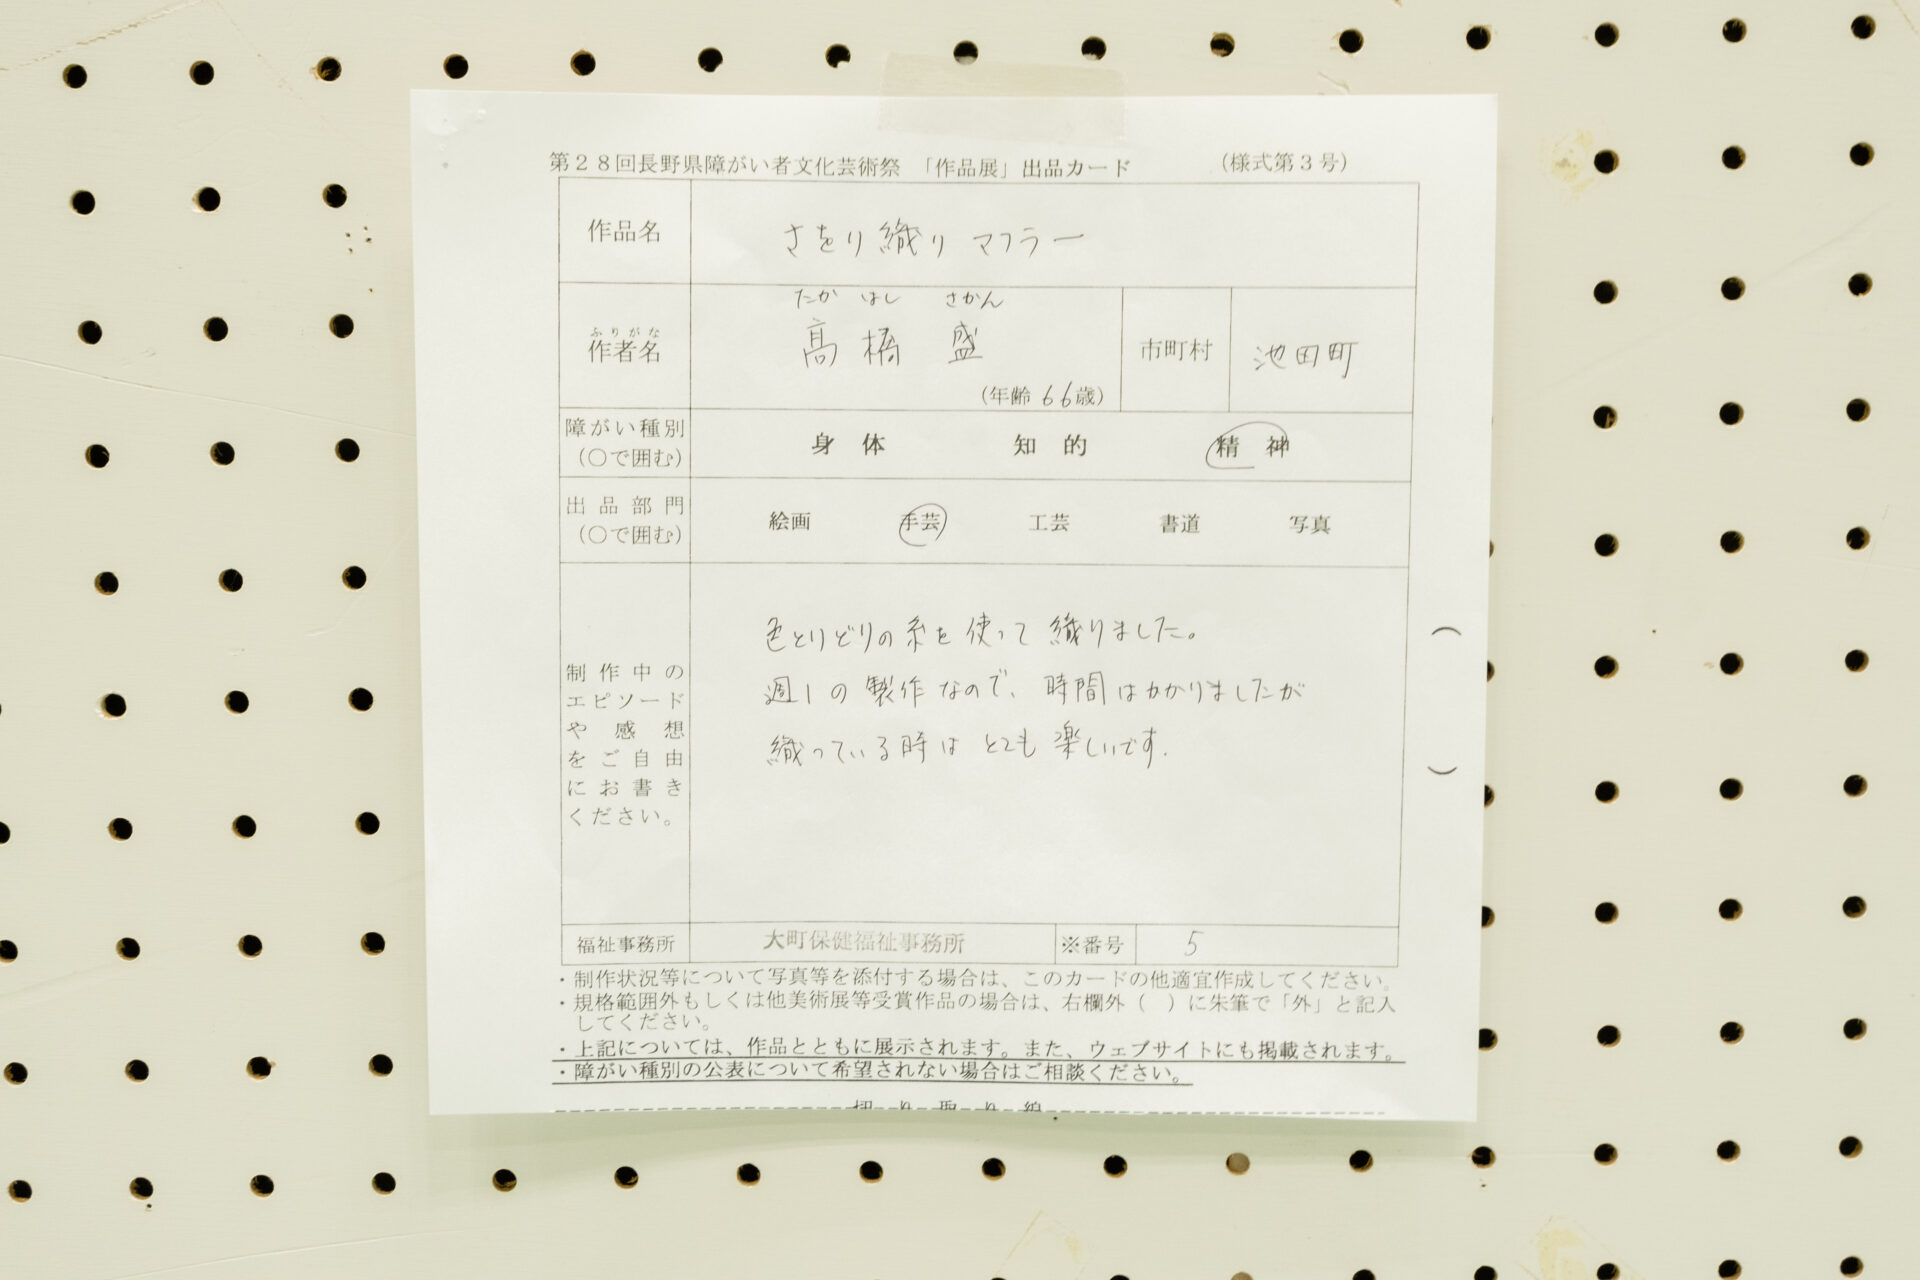 第２８回長野県障がい者文化芸術祭 「作品展」出品カード （様式第３号）
作品名 さをり織り マフラー
たか はし さかん
ふりがな
作者名 髙橋 盛 市町村 池田町
（年齢 66歳）
障がい種別 身 体 知 的 精 神
（○で囲む）
出品部門 絵画 手芸 工芸 書道 写真
（○で囲む）
制作中の
エピソード
や感想
をご自由
にお書き
ください。
色とりどりの糸を使って織りました。
週1の製作なので、時間はかかりましたが
織っている時はとても楽しいです.
（ ）
福祉事務所 大町保健福祉事務所 ※番号 5
・制作状況等について写真等を添付する場合は、このカードの他適宜作成してください。
・規格範囲外もしくは他美術展等受賞作品の場合は、右欄外（ ）に朱筆で「外」と記入
してください。
・上記については、作品とともに展示されます。また、ウェブサイトにも掲載されます。
・障がい種別の公表について希望されない場合はご相談ください。
切り取り線